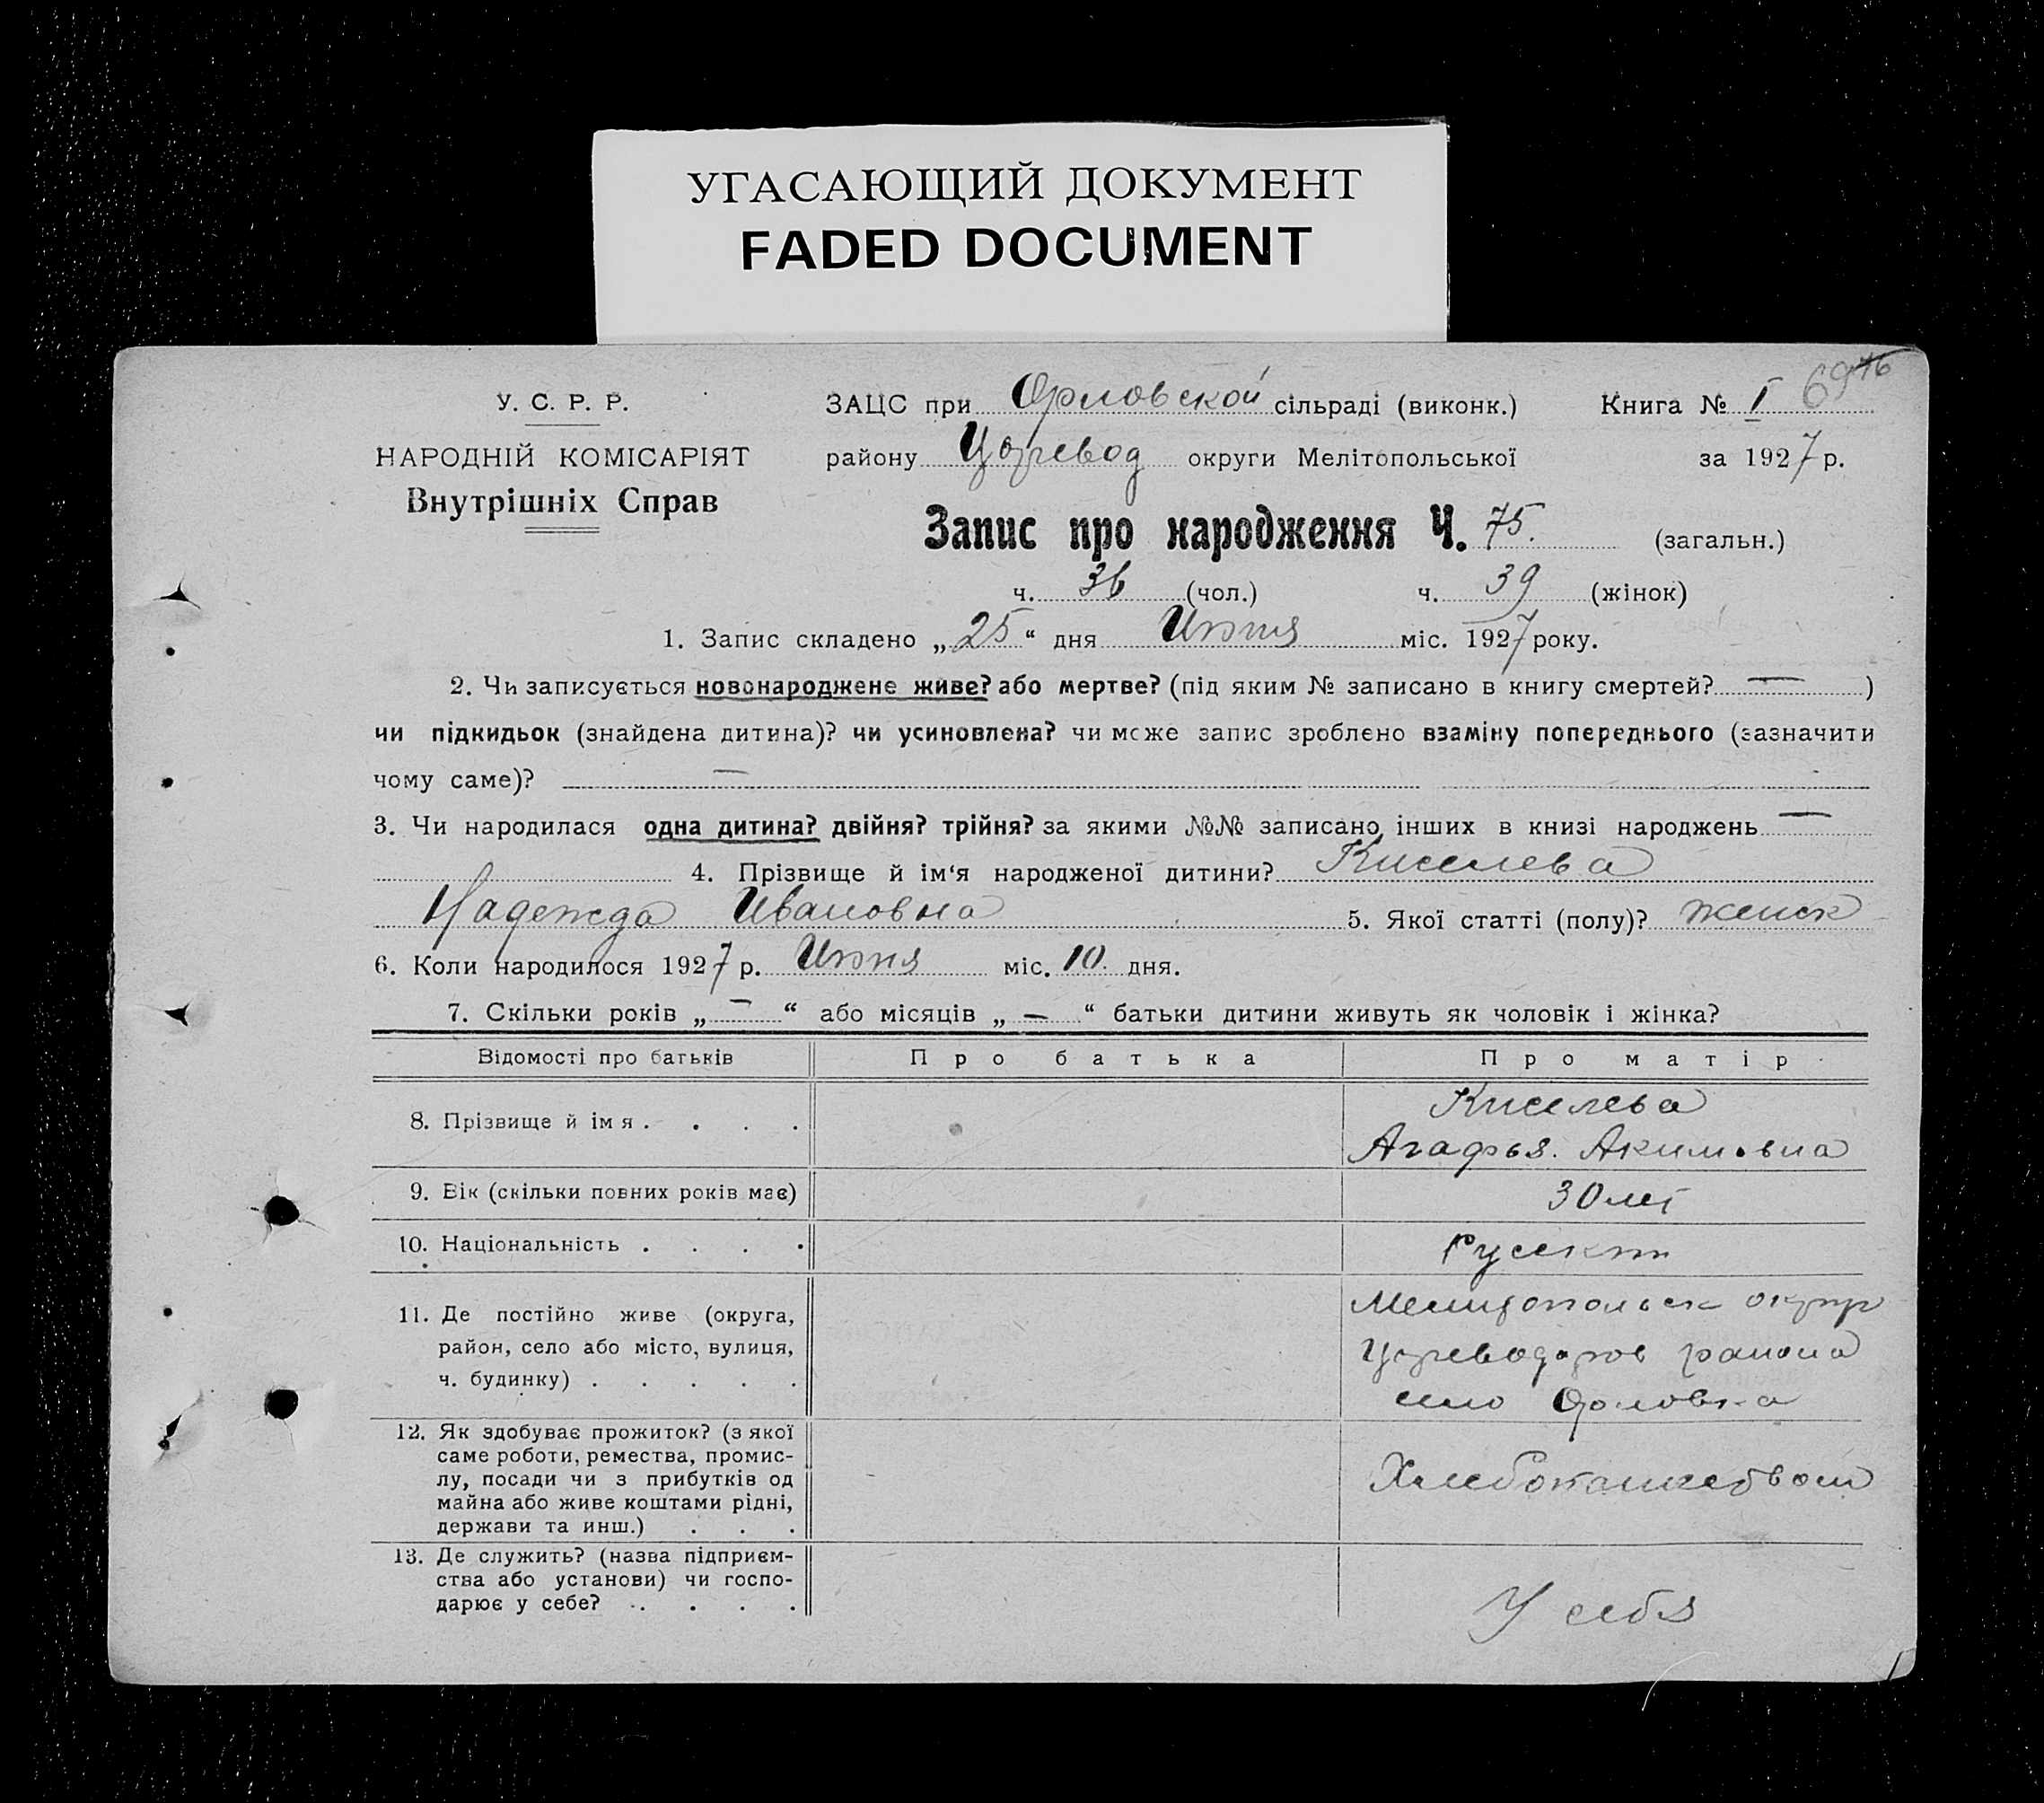 УГАСАЮЩИЙ ДОКУМЕНТ
FADED DOCUMENT
У. С. Р. Р.
НАРОДНІЙ КОМІСАРІЯТ
Внутрішніх Справ
ЗАЦС при Орловской сільраді (виконк.) Книга № I 69 76
району Цареевод округи Мелітопольської за 1927 р.
Запис про народження Ч. 75. (загальн.)
ч. 36 (чол.) ч. 39 (жінок)
1. Запис складено „25“ дня Июня міс. 1927 року.
2. Чи записується новонароджене живе? або мертве? (під яким № записано в книгу смертей? — )
чи підкидьок (знайдена дитина)? чи усиновлена? чи може запис зроблено взаміну попереднього (зазначити
чому саме)? —
3. Чи народилася одна дитина? двійня? трійня? за якими №№ записано інших в книзі народжень —
4. Прізвище й ім‘я народженої дитини? Киселева
Надежда Ивановна 5. Якої статті (полу)? женск
6. Коли народилося 1927 р. Июня міс. 10. дня.
7. Скільки років „—“ або місяців „—“ батьки дитини живуть як чоловік і жінка?
Відомості про батьків Про батька Про матір
8. Прізвище й ім я . . . .
Киселева
Агафья. Акимовна
9. Вік (скільки повних років має) 30 лет
10. Національність . . . . Русск
11. Де постійно живе (округа,
район, село або місто, вулиця,
ч. будинку) . . . . .
Мелитопольск округ
района
село Орловка
12. Як здобуває прожиток? (з якої
саме роботи, ремества, промис-
лу, посади чи з прибутків од
майна або живе коштами рідні,
держави та инш.) . . .
Хлебопашеством
13. Де служить? (назва підприєм-
ства або установи) чи госпо-
дарює у себе? . . . .
У себя